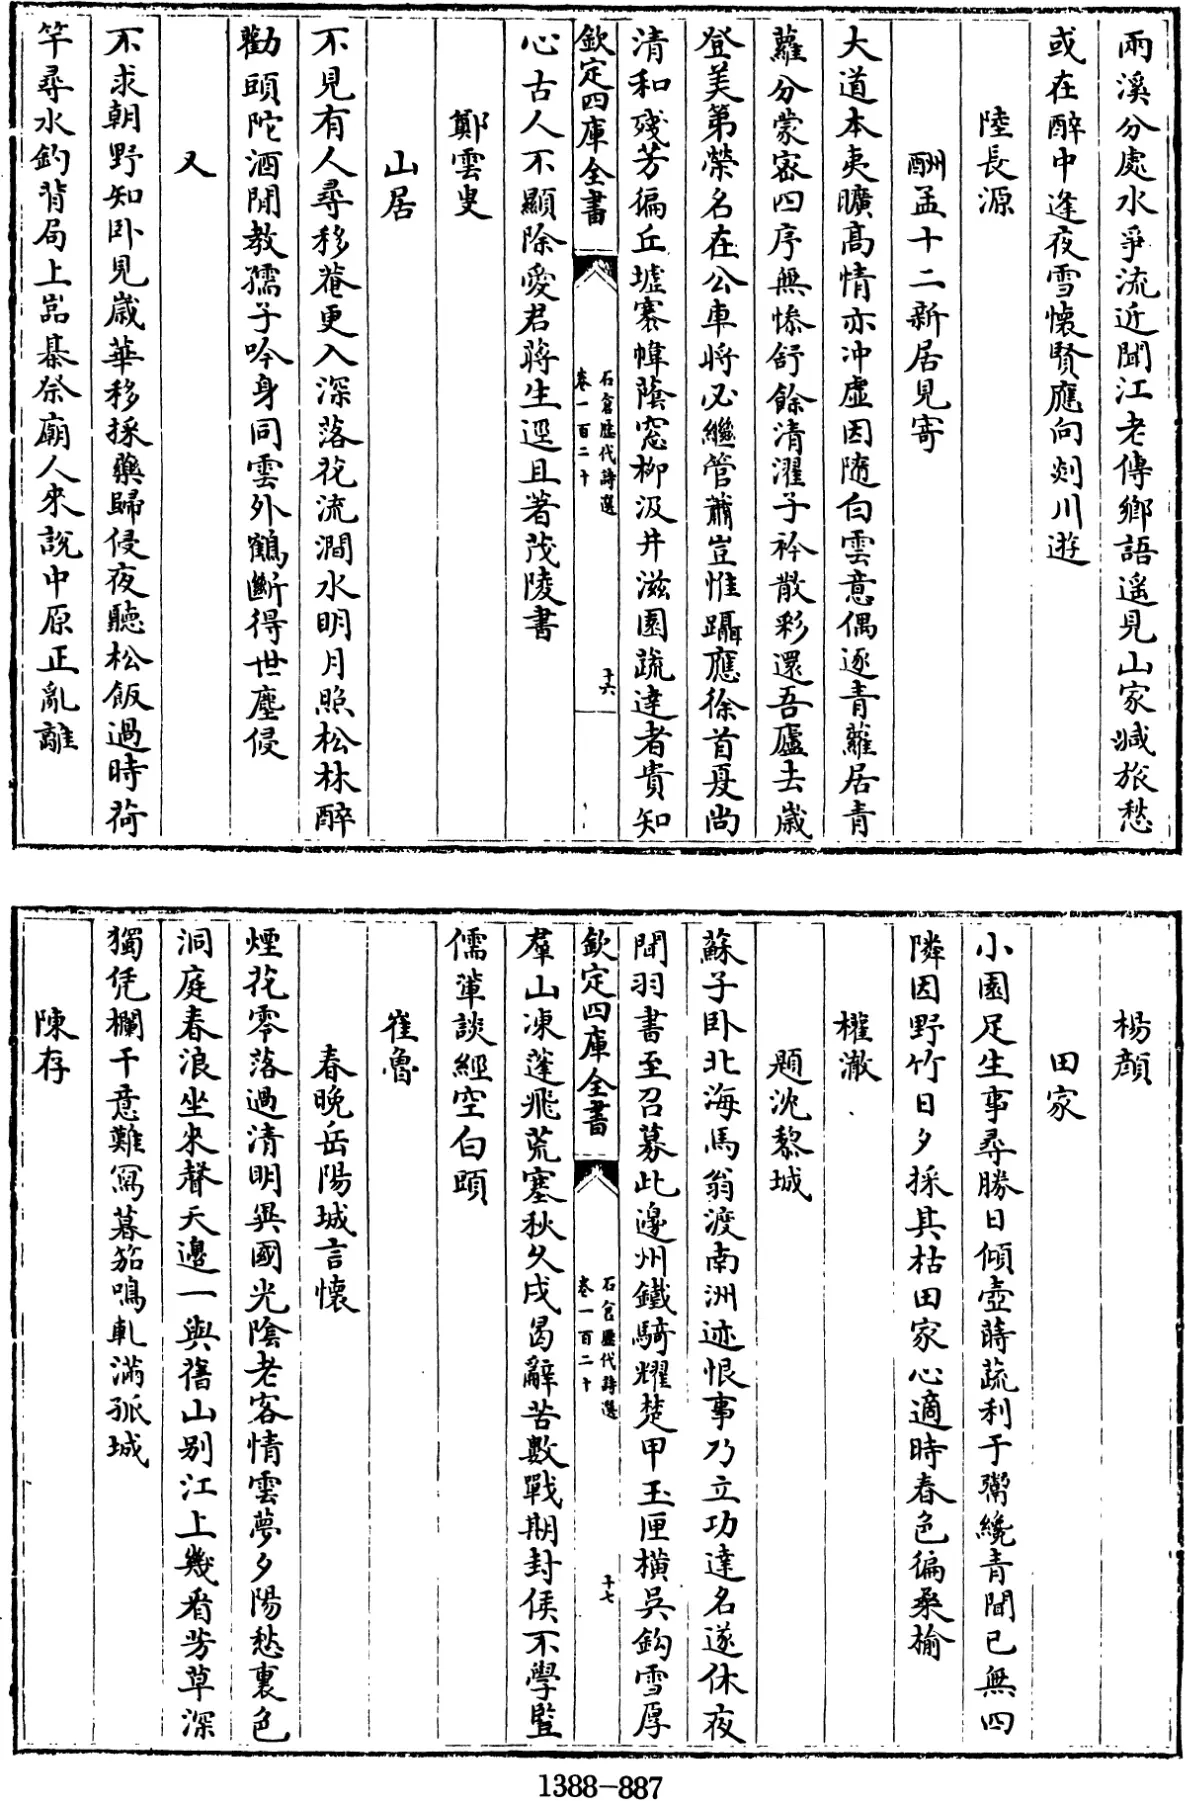 兩溪分處水爭流近聞江老傳鄉語遥見山家減旅愁
或在醉中逢夜雪懷賢應向剡川遊
陸長源
酬孟十二新居見寄
大道本夷曠髙情亦冲虛因隨白雲意偶逐青蘿居青
蘿分蒙宻四序無慘舒餘清濯子衿散彩還吾廬去歲
登美第榮名在公車將必繼管蕭豈惟躡應徐首夏尚
清和殘芳徧丘墟褰幃蔭窓柳汲井滋園蔬達者貴知
欽定四庫全書
石倉歷代詩選
卷一百二十
十六
心古人不顯除愛君蔣生逕且著茂陵書
鄭雲叟
山居
不見有人尋移菴更入深落花流澗水明月照松林醉
勸頭陀酒閒教孺子吟身同雲外鶴斷得世塵侵
又
不求朝野知卧見歲華移採藥歸侵夜聽松飯過時荷
竿尋水釣背局上嵓棊祭廟人來說中原正亂離
楊顔
田家
小園足生事尋勝日傾壺蒔蔬利于鬻纔青間已無四
隣因野竹日夕採其枯田家心適時春色徧桑榆
權澈
題沈黎城
蘇子卧北海馬翁渡南洲迹恨事乃立功達名遂休夜
聞羽書至召募此邊州鐵騎耀楚甲玉匣橫吳鈎雪厚
欽定四庫全書
石倉歷代詩選
卷一百二十
十七
羣山凍蓬飛荒塞秋久戍曷辭苦數戰期封侯不學豎
儒軰談經空白頭
崔魯
春晚岳陽城言懷
煙花零落過清明異國光陰老客情雲夢夕陽愁裏色
洞庭春浪坐來聲天邊一與舊山別江上幾看芳草深
獨凭欄干意難寫暮笳鳴軋滿孤城
陳存
1388-887